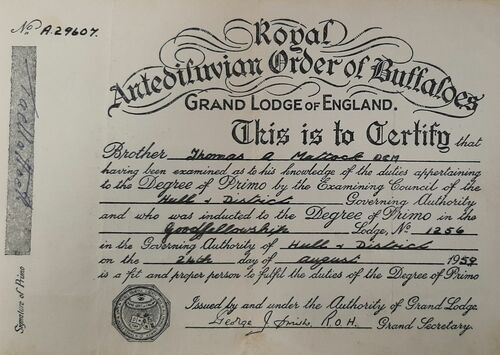 No A.29607.
Royal
Antediluvian Order of Buffaloes
GRAND LODGE OF ENGLAND.
This is to Certify that
Brother Thomas A Mattock DCM
having been examined as to his knowledge of the duties appertaining
to the Degree of Primo by the Examining Council of the
Hull & District Governing Authority
and who was inducted to the Degree of Primo in the
Goodfellowship Lodge, No 1256
in the Governing Authority of Hull & District
on the 24th day of august 1959
is a fit and proper person to fulfil the duties of the Degree of Primo
Issued by and under the Authority of Grand Lodge.
George J Smith R.O.H. Grand Secretary.
Signature of Primo